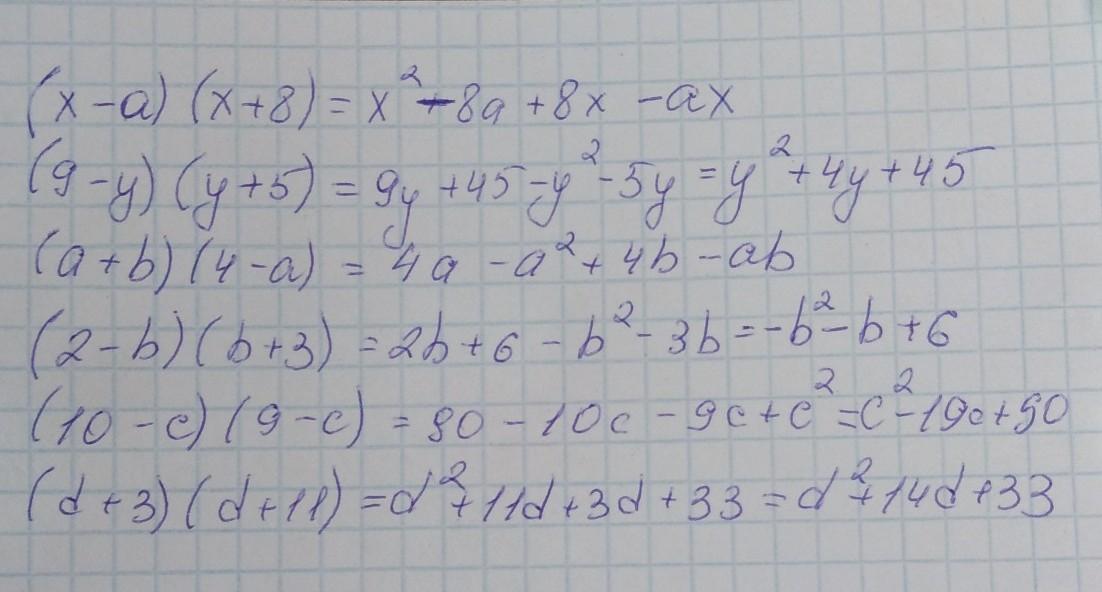 (x-a)(x+8)=x²-8a+8x-ax
(9-y)(y+5)=9y+45-y²-5y=y²+4y+45
(a+b)(4-a)=4a-a²+4b-ab
(2-b)(b+3)=2b+6-b²-3b=-b²-b+6
(10-c)(9-c)=90-10c-9c+c²=c²-19c+90
(d+3)(d+11)=d²+11d+3d+33=d²+14d+33